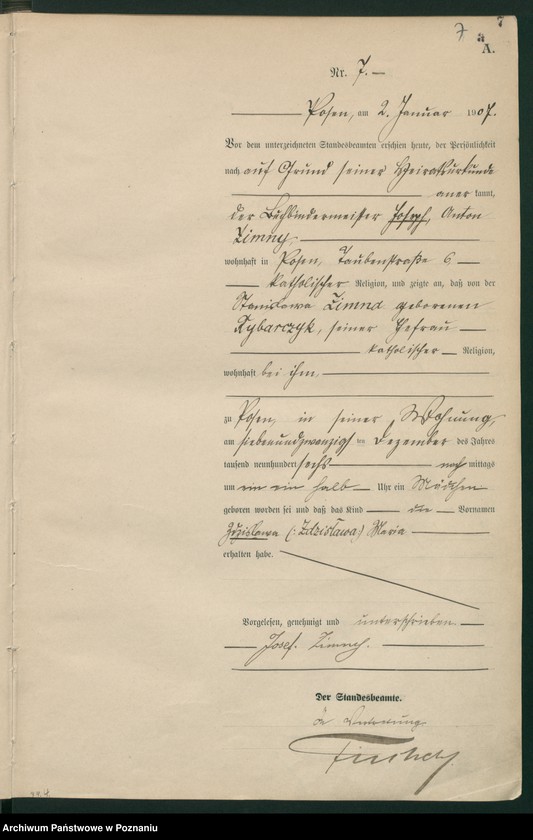 7
7
a
A.
Nr. 7.
Posen, am 2. Januar 1907.
Vor dem unterzeichneten Standesbeamten erschien heute, der Persönlichkeit
nach auf Grund seiner Heiratsurkunde
aner kannt,
der Buchbindermeister Joseph, Anton
Zimny,
wohnhaft in Posen, Taubenstraße 6
katholischer Religion, und zeigte an, daß von der
Stanislawa Zimna geborenen
Rybarczyk, seiner Ehefrau
katholischer Religion,
wohnhaft bei ihm,
zu Posen, in seiner Wohnung,
am siebenundzwanzigsten Dezember des Jahres
tausend neunhundert sechs nach mittags
um ein ein halb Uhr ein Mädchen
geboren worden sei und daß das Kind die Vornamen
Zdzislawa (: Zdzisława :) Maria
erhalten habe.
Vorgelesen, genehmigt und unterschrieben.
Josef Zimny.
Der Standesbeamte.
In Vertretung
Archiwum Państwowe w Poznaniu